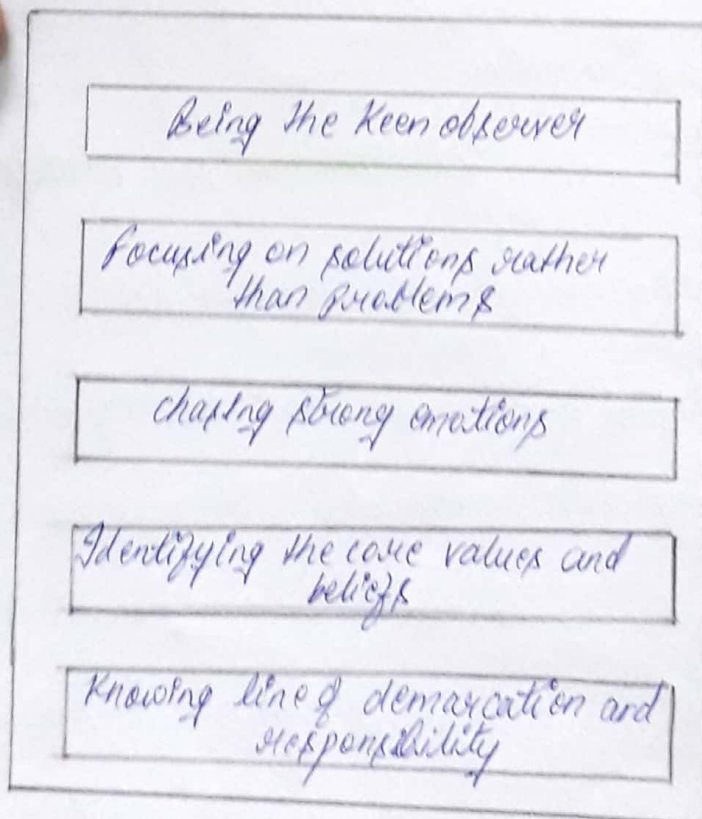 Being the Keen observer
focusing on solutions rather
than problems
chasing strong emotions
Identifying the core values and
beliefs
Knowing line of demarcation and
responsibility